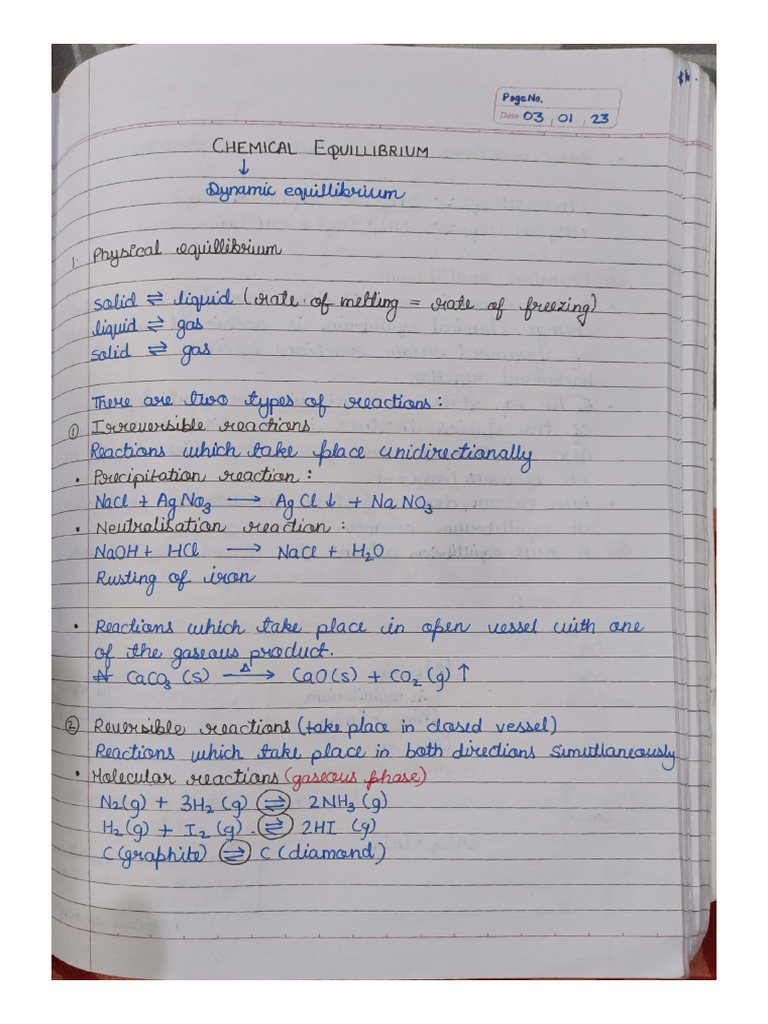 Page No.
Date 03 01 23
CHEMICAL EQUILLIBRIUM
↓
Dynamic equillibrium
1. Physical equillibrium
solid ⇌ liquid (rate of melting = rate of freezing)
liquid ⇌ gas
solid ⇌ gas
There are two types of reactions:
① Irreversible reactions
Reactions which take place unidirectionally
• Precipitation reaction:
NaCl + AgNO₃ ⟶ AgCl↓ + NaNO₃
• Neutralisation reaction:
NaOH + HCl ⟶ NaCl + H₂O
Rusting of iron
• Reactions which take place in open vessel with one
of the gaseous product.
CaCO₃ (s) —Δ→ CaO(s) + CO₂(g)↑
② Reversible reactions (take place in closed vessel)
Reactions which take place in both directions simutlaneously
• Molecular reactions (gaseous phase)
N₂(g) + 3H₂(g) ⇌ 2NH₃(g)
H₂(g) + I₂(g) ⇌ 2HI (g)
C(graphite) ⇌ C(diamond)